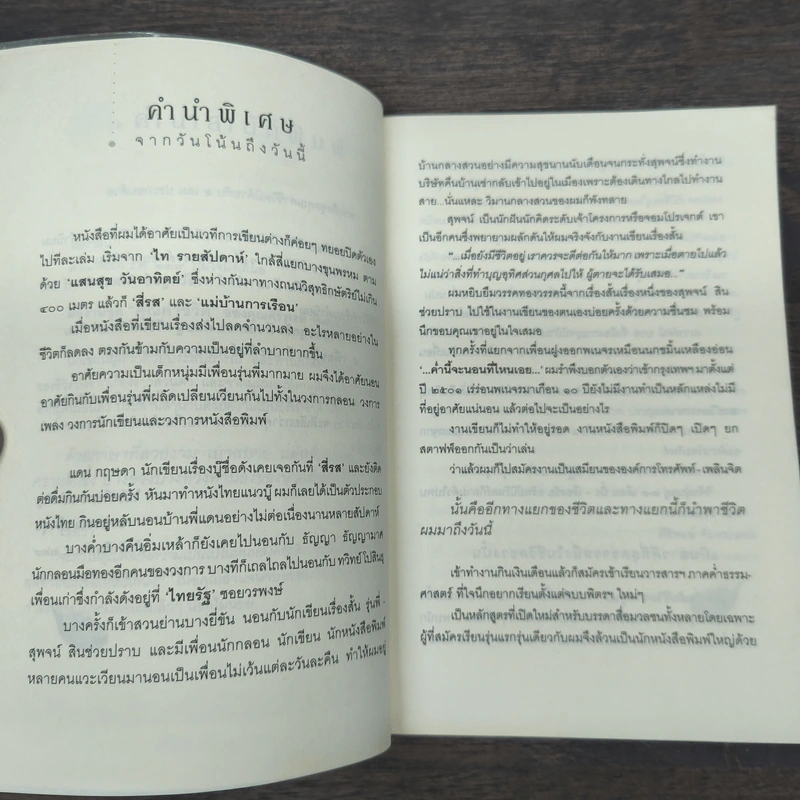 คำนำพิเศษ
จากวันโน้นถึงวันนี้
หนังสือที่ผมได้อาศัยเป็นเวทีการเขียนต่างก็ค่อยๆ ทยอยปิดตัวเอง
ไปทีละเล่ม เริ่มจาก 'ไท รายสัปดาห์' ใกล้สี่แยกบางขุนพรหม ตาม
ด้วย 'แสนสุข วันอาทิตย์' ซึ่งห่างกันมาทางถนนวิสุทธิกษัตริย์ไม่เกิน
๔๐๐ เมตร แล้วก็ 'สี่รส' และ 'แม่บ้านการเรือน'
เมื่อหนังสือที่เขียนเรื่องส่งไปลดจำนวนลง อะไรหลายอย่างใน
ชีวิตก็ลดลง ตรงกันข้ามกับความเป็นอยู่ที่ลำบากยากขึ้น
อาศัยความเป็นเด็กหนุ่มมีเพื่อนรุ่นพี่มากมาย ผมจึงได้อาศัยนอน
อาศัยกินกับเพื่อนรุ่นพี่ผลัดเปลี่ยนเวียนกันไปทั้งในวงการกลอน วงการ
เพลง วงการนักเขียนและวงการหนังสือพิมพ์
แดน กฤษดา นักเขียนเรื่องบู๊ชื่อดังเคยเจอกันที่ 'สี่รส' และยังติด
ต่อดื่มกินกันบ่อยครั้ง หันมาทำหนังไทยแนวบู๊ ผมก็เลยได้เป็นตัวประกอบ
หนังไทย กินอยู่หลับนอนบ้านพี่แดนอย่างไม่ต่อเนื่องนานหลายสัปดาห์
บางค่ำบางคืนอิ่มเหล้าก็ยังเคยไปนอนกับ ธัญญา ธัญญามาศ
นักกลอนมือทองอีกคนของวงการ บางทีก็เถลไถลไปนอนกับ ทวิทย์ โปสินธุ
เพื่อนเก่าซึ่งกำลังดังอยู่ที่ 'ไทยรัฐ' ซอยวรพงษ์
บางครั้งก็เข้าสวนย่านบางยี่ขัน นอนกับนักเขียนเรื่องสั้น รุ่นพี่ -
สุพจน์ สินช่วยปราบ และมีเพื่อนนักกลอน นักเขียน นักหนังสือพิมพ์
หลายคนแวะเวียนมานอนเป็นเพื่อนไม่เว้นแต่ละวันละคืน ทำให้ผมอยู่
บ้านกลางสวนอย่างมีความสุขนานนับเดือนจนกระทั่งสุพจน์ซึ่งทำงาน
บริษัทคืนบ้านเช่ากลับเข้าไปอยู่ในเมืองเพราะต้องเดินทางไกลไปทำงาน
สาย...นั่นแหละ วิมานกลางสวนของผมก็พังทลาย
สุพจน์ เป็นนักฝันนักคิดระดับเจ้าโครงการหรือจอมโปรเจกต์ เขา
เป็นอีกคนซึ่งพยายามผลักดันให้ผมจริงจังกับงานเขียนเรื่องสั้น
"...เมื่อยังมีชีวิตอยู่ เราควรจะดีต่อกันให้มาก เพราะเมื่อตายไปแล้ว
ไม่แน่ว่าสิ่งที่ทำบุญอุทิศส่วนกุศลไปให้ ผู้ตายจะได้รับเสมอ..."
ผมหยิบยืมวรรคทองวรรคนี้จากเรื่องสั้นเรื่องหนึ่งของสุพจน์ สิน
ช่วยปราบ ไปใช้ในงานเขียนของตนเองบ่อยครั้งด้วยความชื่นชม พร้อม
นึกขอบคุณเขาอยู่ในใจเสมอ
ทุกครั้งที่แยกจากเพื่อนฝูงออกพเนจรเหมือนนกขมิ้นเหลืองอ่อน
'...ค่ำนี้จะนอนที่ไหนเอย...' ผมรำพึงบอกตัวเองว่าเข้ากรุงเทพฯ มาตั้งแต่
ปี ๒๕๐๑ เร่ร่อนพเนจรมาเกือบ ๑๐ ปียังไม่มีงานทำเป็นหลักแหล่งไม่มี
ที่อยู่อาศัยแน่นอน แล้วต่อไปจะเป็นอย่างไร
งานเขียนก็ไม่ทำให้อยู่รอด งานหนังสือพิมพ์ก็ปิดๆ เปิดๆ ยก
สตาฟฟ์ออกกันเป็นว่าเล่น
ว่าแล้วผมก็ไปสมัครงานเป็นเสมียนขององค์การโทรศัพท์ - เพลินจิต
นั้นคืออีกทางแยกของชีวิตและทางแยกนี้ก็นำพาชีวิต
ผมมาถึงวันนี้
เข้าทำงานกินเงินเดือนแล้วก็สมัครเข้าเรียนวารสารฯ ภาคค่ำธรรม-
ศาสตร์ ที่ใจนึกอยากเรียนตั้งแต่จบบพิตรฯ ใหม่ๆ
เป็นหลักสูตรที่เปิดใหม่สำหรับบรรดาสื่อมวลชนทั้งหลายโดยเฉพาะ
ผู้ที่สมัครเรียนรุ่นแรกรุ่นเดียวกับผมจึงล้วนเป็นนักหนังสือพิมพ์ใหญ่ด้วย